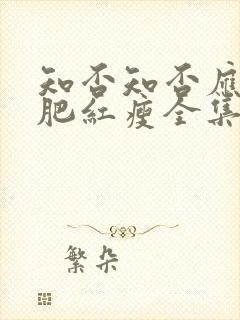 知否知否應
肥紅瘦全集
繁朵